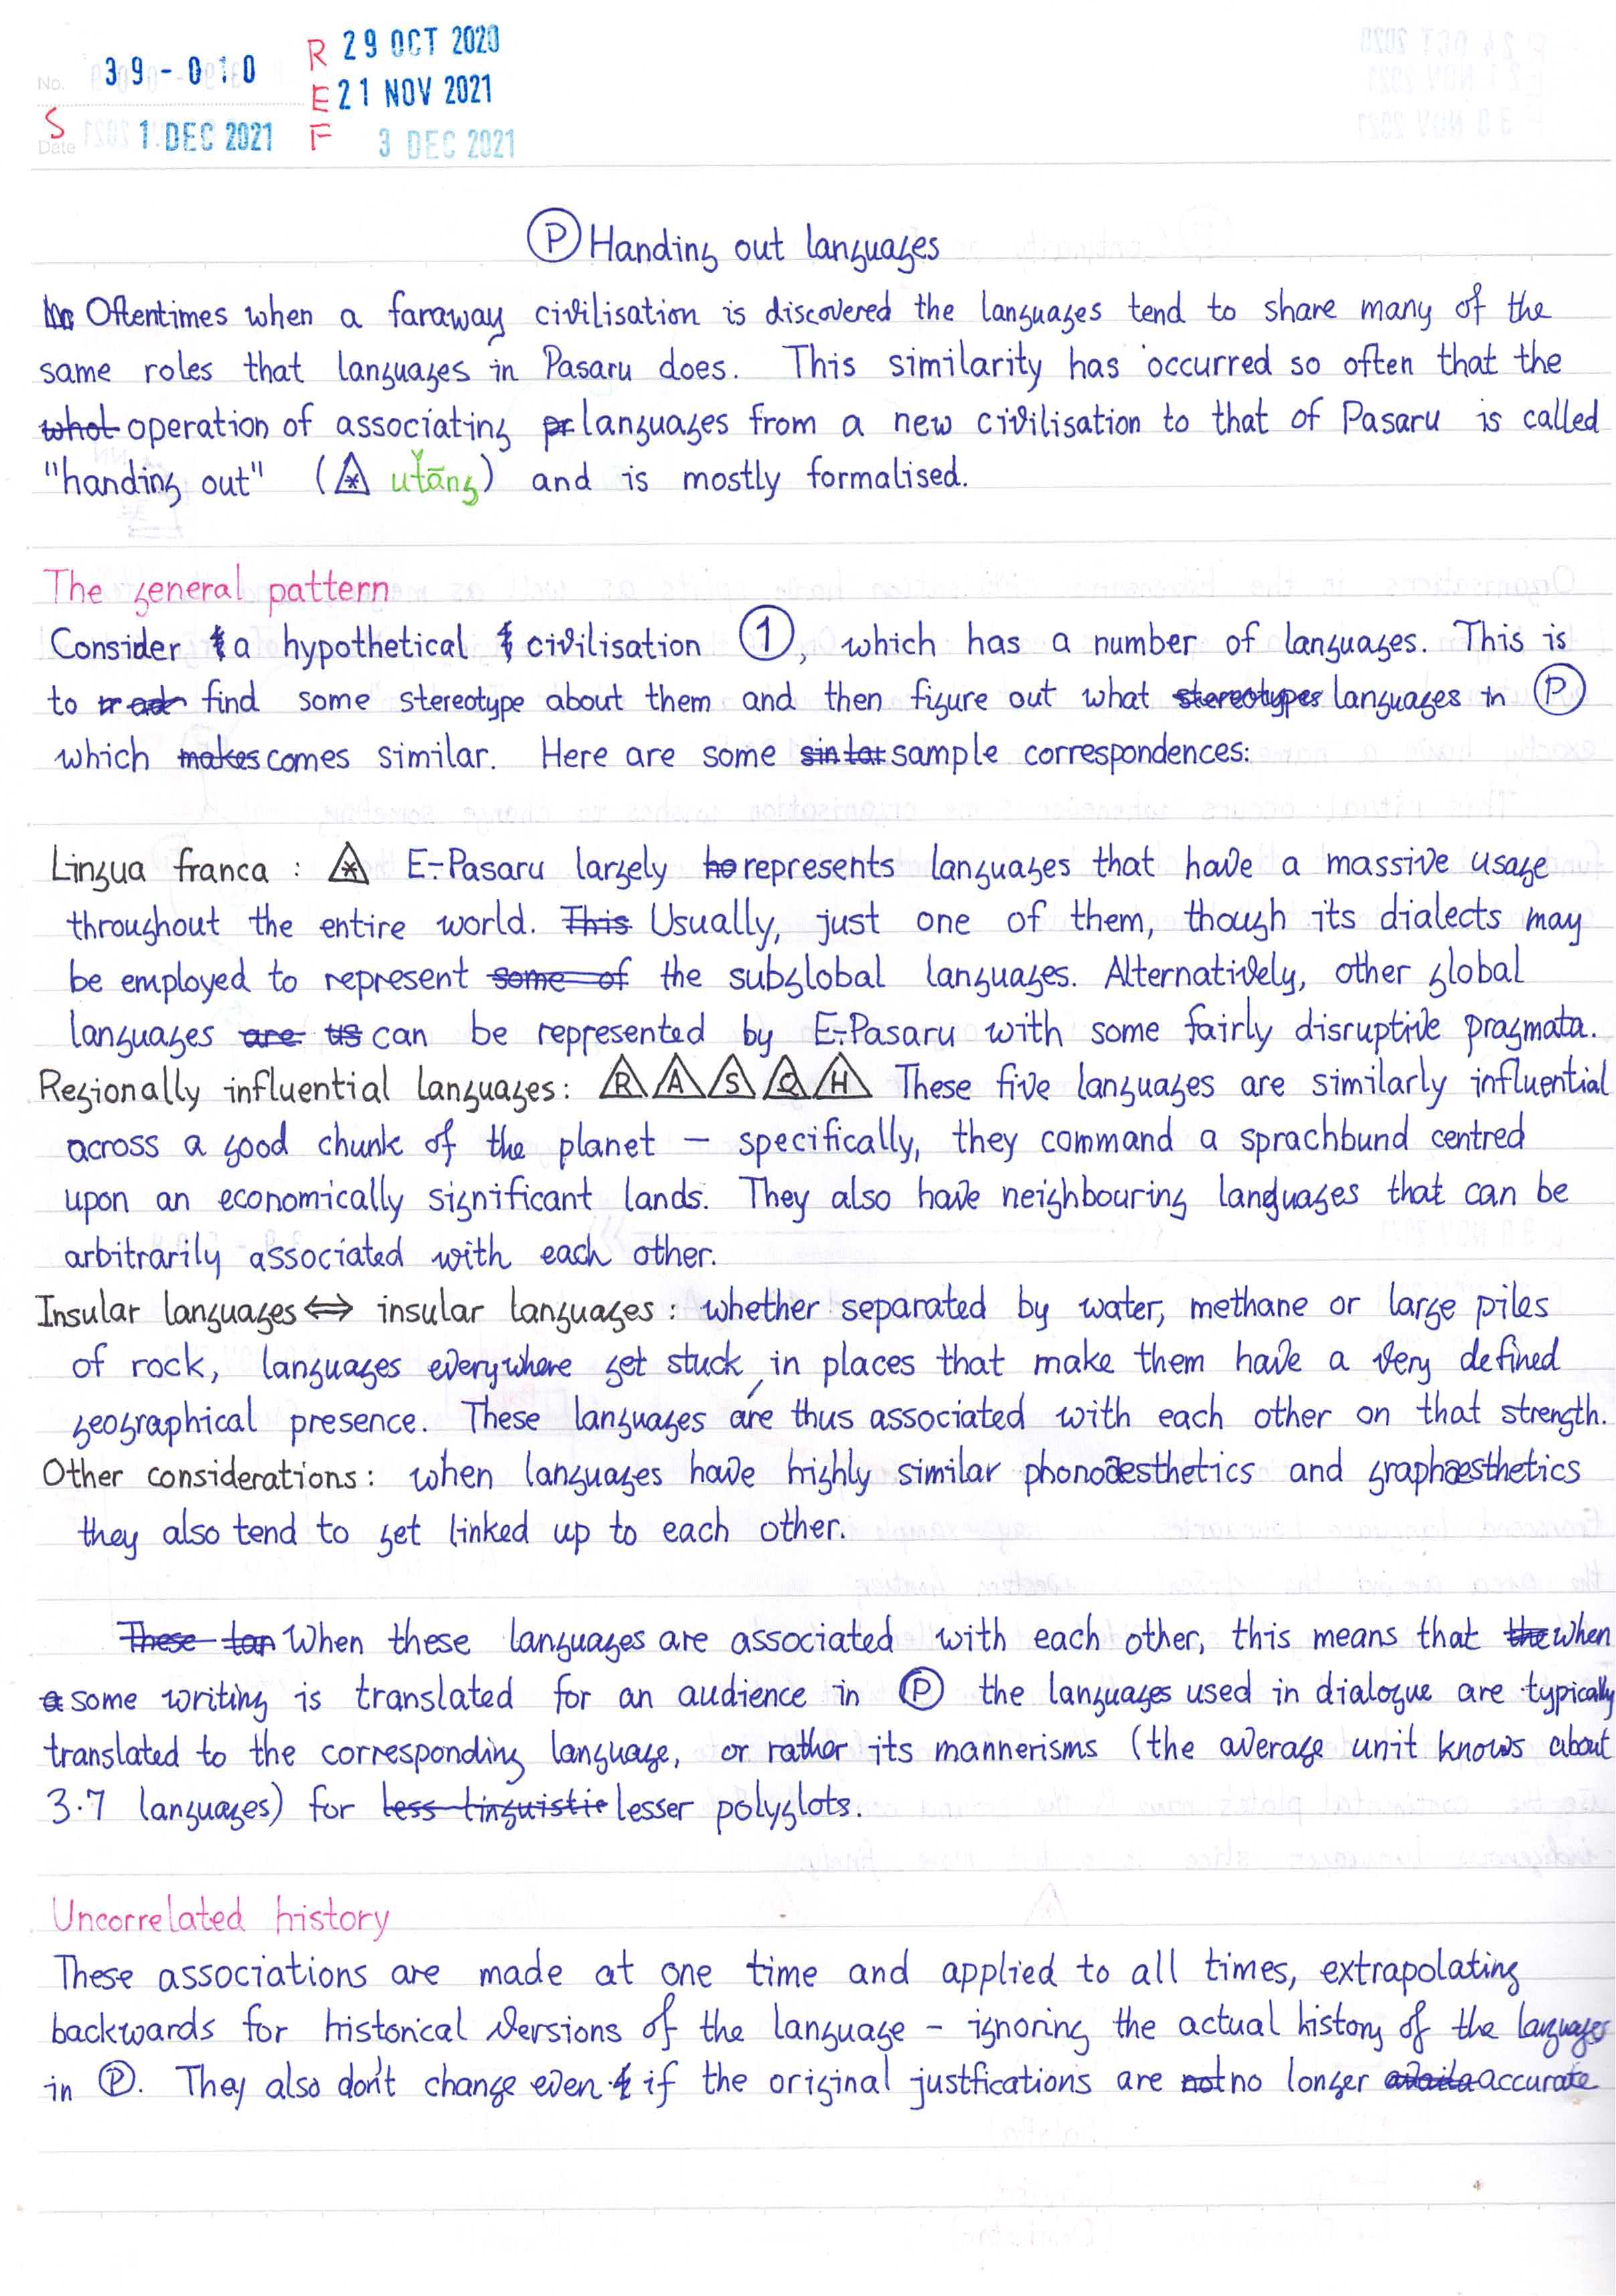 No. 39-010
R 29 OCT 2020
E 21 NOV 2021
S
Date 1 DEC 2021
F 3 DEC 2021
Ⓟ Handing out languages
Oftentimes when a faraway civilisation is discovered the languages tend to share many of the
same roles that languages in Pasaru does. This similarity has occurred so often that the
what operation of associating pr languages from a new civilisation to that of Pasaru is called
"handing out" (⚠ utǎng) and is mostly formalised.
The general pattern
Consider a hypothetical civilisation ①, which has a number of languages. This is
to find some stereotype about them and then figure out what stereotypes languages in Ⓟ
which makes comes similar. Here are some sample correspondences:
Lingua franca : E-Pasaru largely represents languages that have a massive usage
throughout the entire world. This Usually, just one of them, though its dialects may
be employed to represent some of the subglobal languages. Alternatively, other global
languages are us can be represented by E-Pasaru with some fairly disruptive pragmata.
Regionally influential languages: R A S Q H These five languages are similarly influential
across a good chunk of the planet – specifically, they command a sprachbund centred
upon an economically significant lands. They also have neighbouring languages that can be
arbitrarily associated with each other.
Insular languages ⇔ insular languages : whether separated by water, methane or large piles
of rock, languages everywhere get stuck in places that make them have a very defined
geographical presence. These languages are thus associated with each other on that strength.
Other considerations: when languages have highly similar phonoaesthetics and graphæsthetics
they also tend to get linked up to each other.
These When these languages are associated with each other, this means that the when
a some writing is translated for an audience in Ⓟ the languages used in dialogue are typically
translated to the corresponding language, or rather its mannerisms (the average unit knows about
3·7 languages) for less linguistic lesser polyglots.
Uncorrelated history
These associations are made at one time and applied to all times, extrapolating
backwards for historical versions of the language – ignoring the actual history of the languages
in Ⓟ. They also don't change even if the original justfications are not no longer accurate